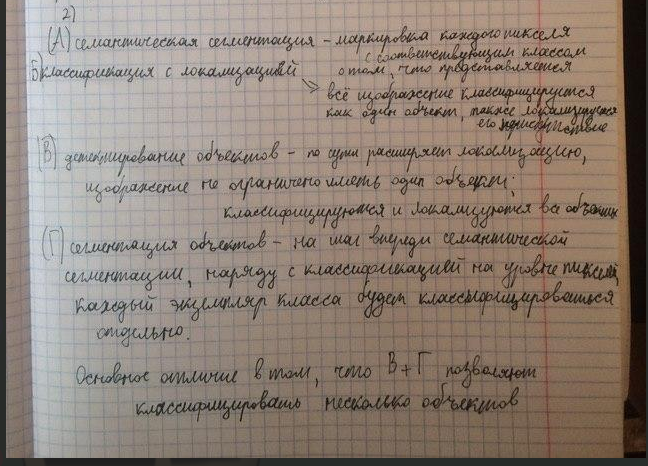 2)
(А) семантическая сегментация - маркировка каждого пикселя
с соответствующим классом
о том, что представляется
Б) классификация с локализацией
всё изображение классифицируется
как один объект, также локализируется
его присутствие
(В) детектирование объектов - по сути расширяет локализацию,
изображение не ограничено иметь один объект;
классифицируются и локализуются все объекты
(Г) сегментация объектов - на шаг впереди семантической
сегментации, наряду с классификацией на уровне пикселей,
каждый экземпляр класса будет классифицироваться
отдельно.
Основное отличие в том, что В+Г позволяют
классифицировать несколько объектов